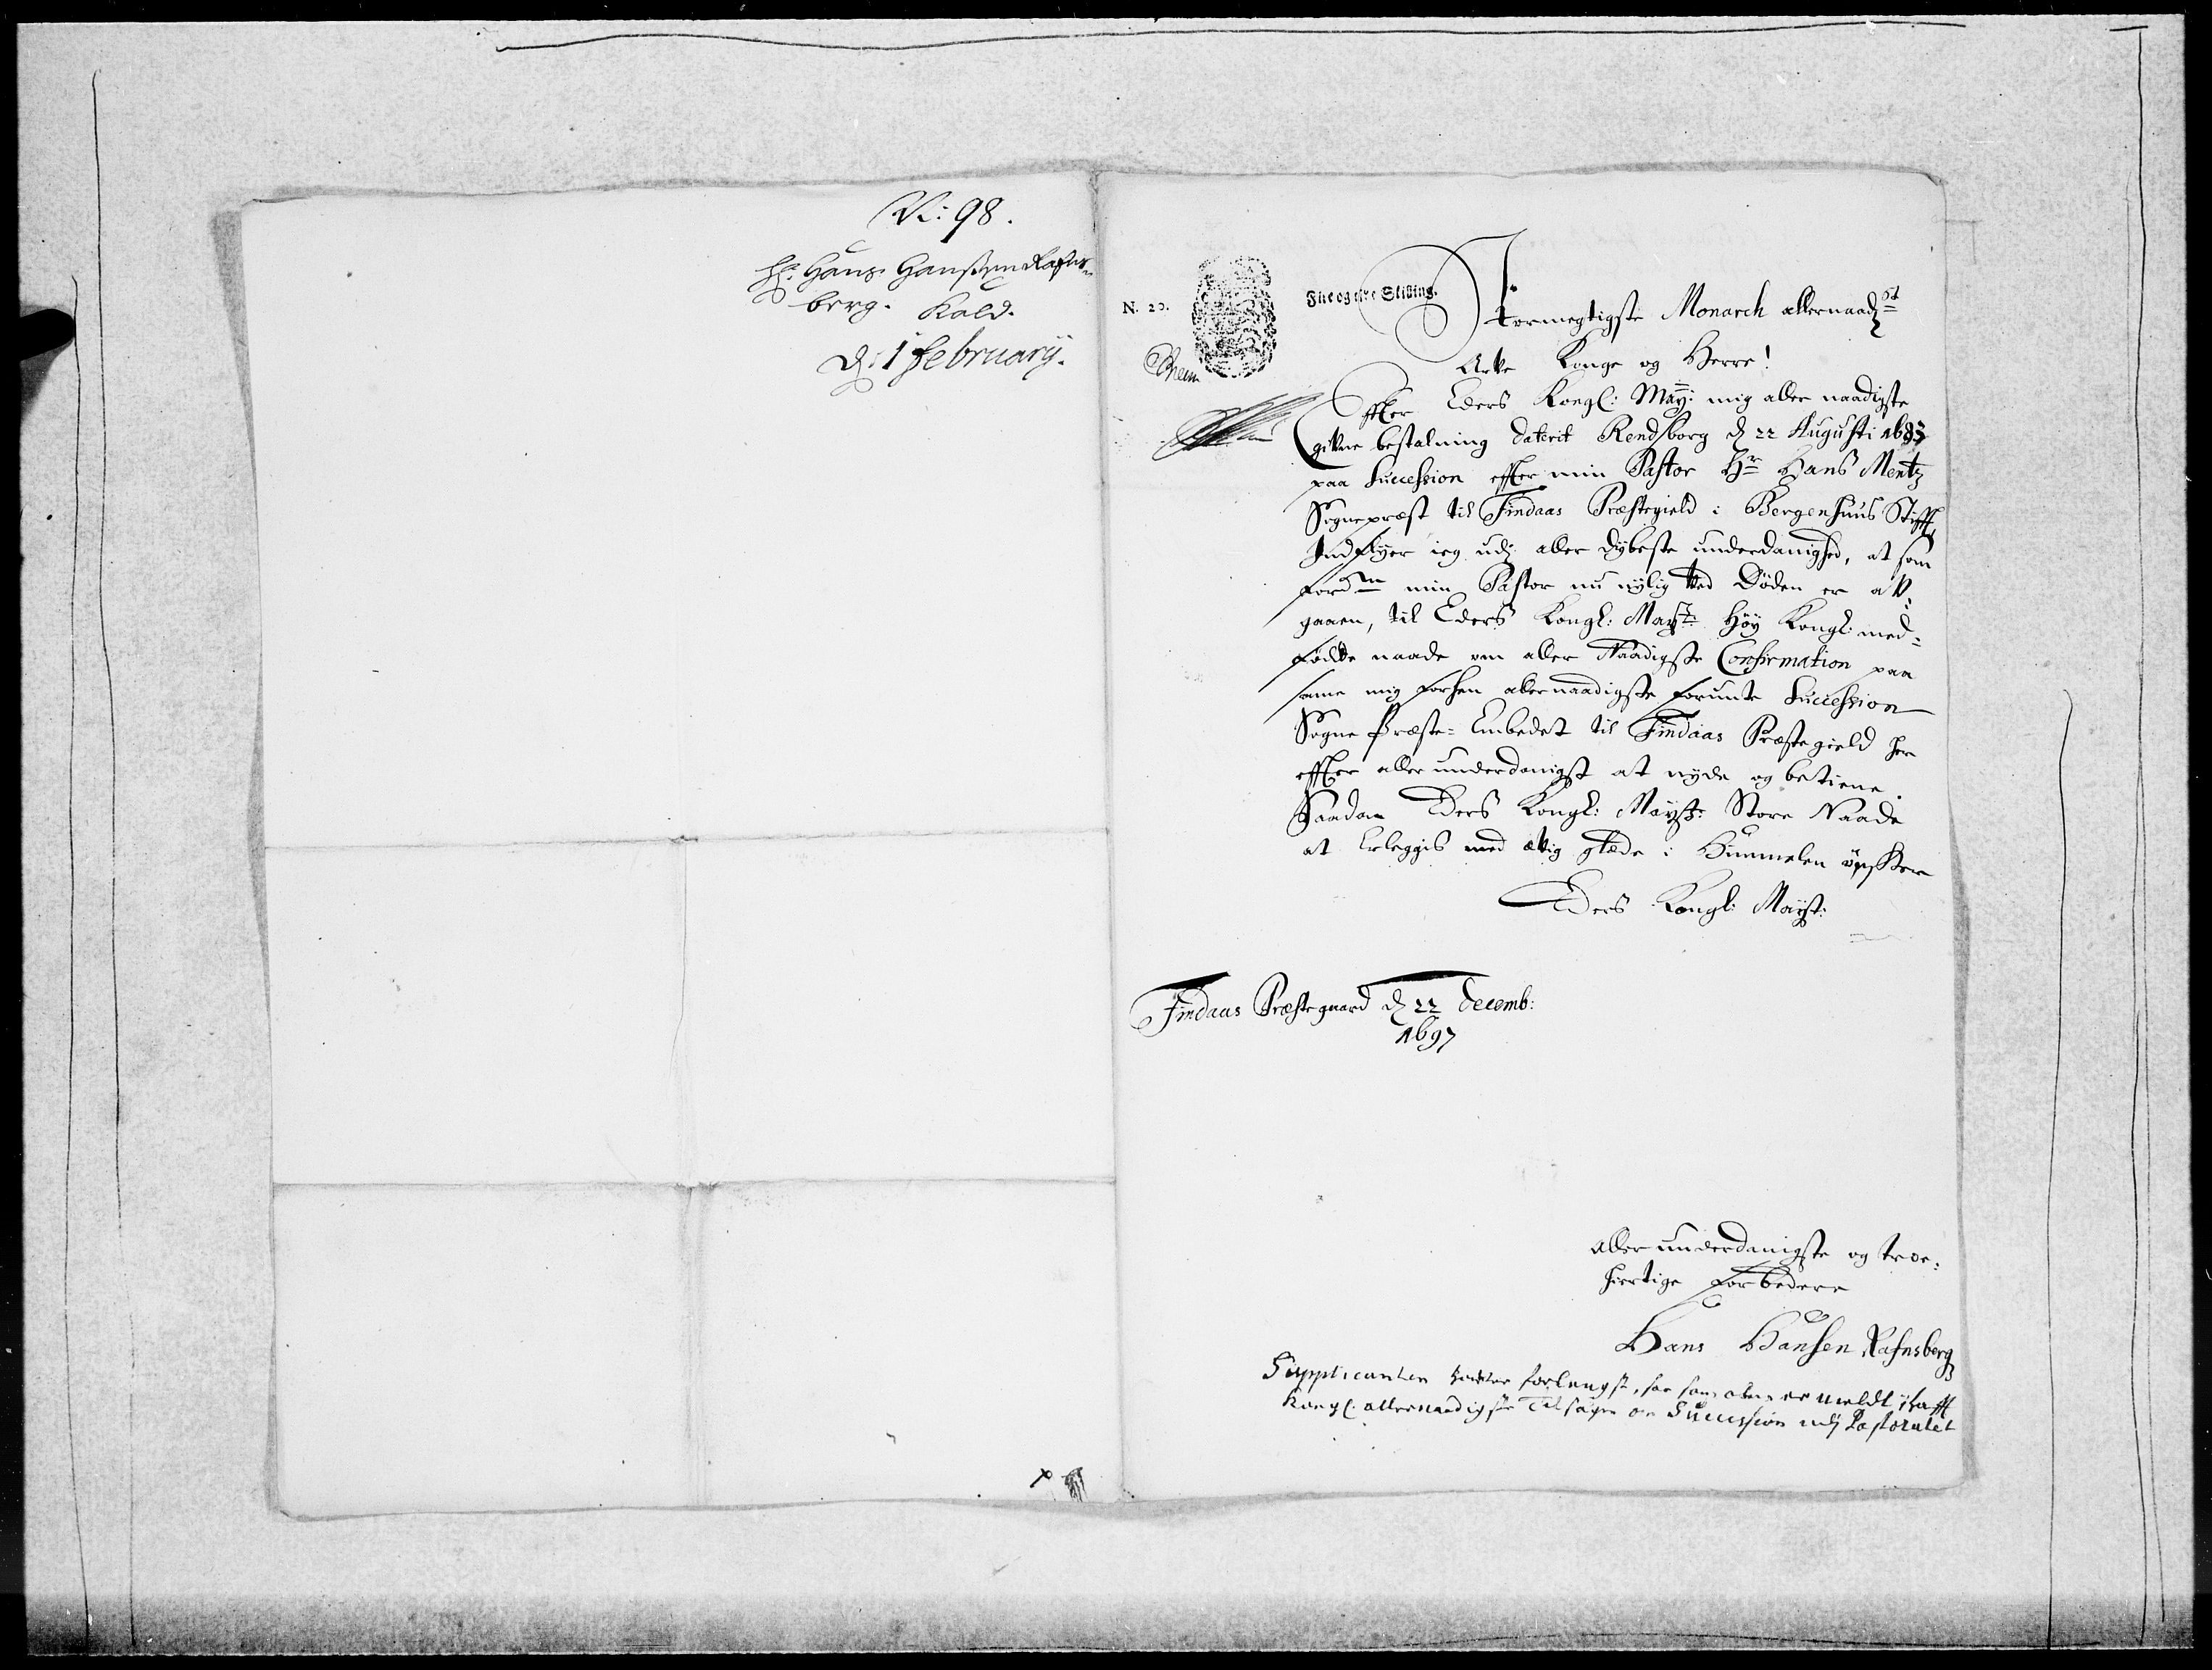 N: 98.
Hr: Hans Hanßen Rafns-
berg. Kald.
d: 1 February.
N. 20.
Fire og tive Skilling.
Stormegtigste Monarch allernaadst
Arve Konge og Herre!
Effter Eders Kongl: May: mig aller naadigste
givne bestalning daterit Rendsborg d 22 Augusti 1683
paa Succession effter min Pastor Hr Hans Mentz
Sognepræst til Findaas Præstegield i Bergenhuus Stifft,
Indflyer ieg udj aller dybeste underdanighed, at som
fordn min Pastor nu nylig ved Døden er af-
gaaen, til Eders Kongl: Mayt: Høy Kongl: med-
fødde naade om aller Naadigste Confirmation paa
samme mig forhen allernaadigste forunte Succession
Sogne Præste-Embedet til Findaas Præstegield her
effter aller underdanigst at nyde og betiene.
Saadan Eders Kongl: Mayst: Store Naade
at belæggis med ævig glæde i Himmelen ønsker
Eders Kongl: Mayst:
Findaas Præstegaard d 22 Decemb:
1697
aller underdanigste og troe-
hiertige forbedere
Hans Hansen Rafnsberg
Supplicanten haver forlengst, saa som oben er meldt, hafft
Kongl. allernaadigste Tilsagn om Succession udj Pastoratet